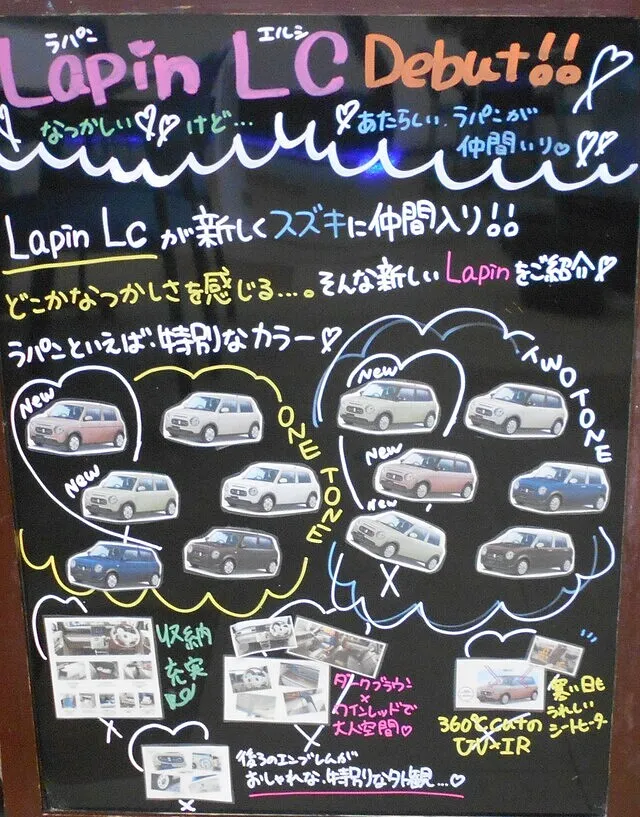 ラパン エルシ
Lapin LC Debut!!
なつかしい けど…
あたらしい ラパンが
仲間いり
Lapin LC が新しくスズキに仲間入り!!
どこかなつかしさを感じる…。そんな新しい Lapinをご紹介
ラパンといえば・特別なカラー
New
New
ONE TONE
New
New
New
TWO TONE
収納
充実
ダークブラウン
×
ワインレッドで
大人空間
寒い日も
うれしい
シートヒーター
360℃ cutの
UV×IR
後ろのエンブレムが
おしゃれな特別な外観…